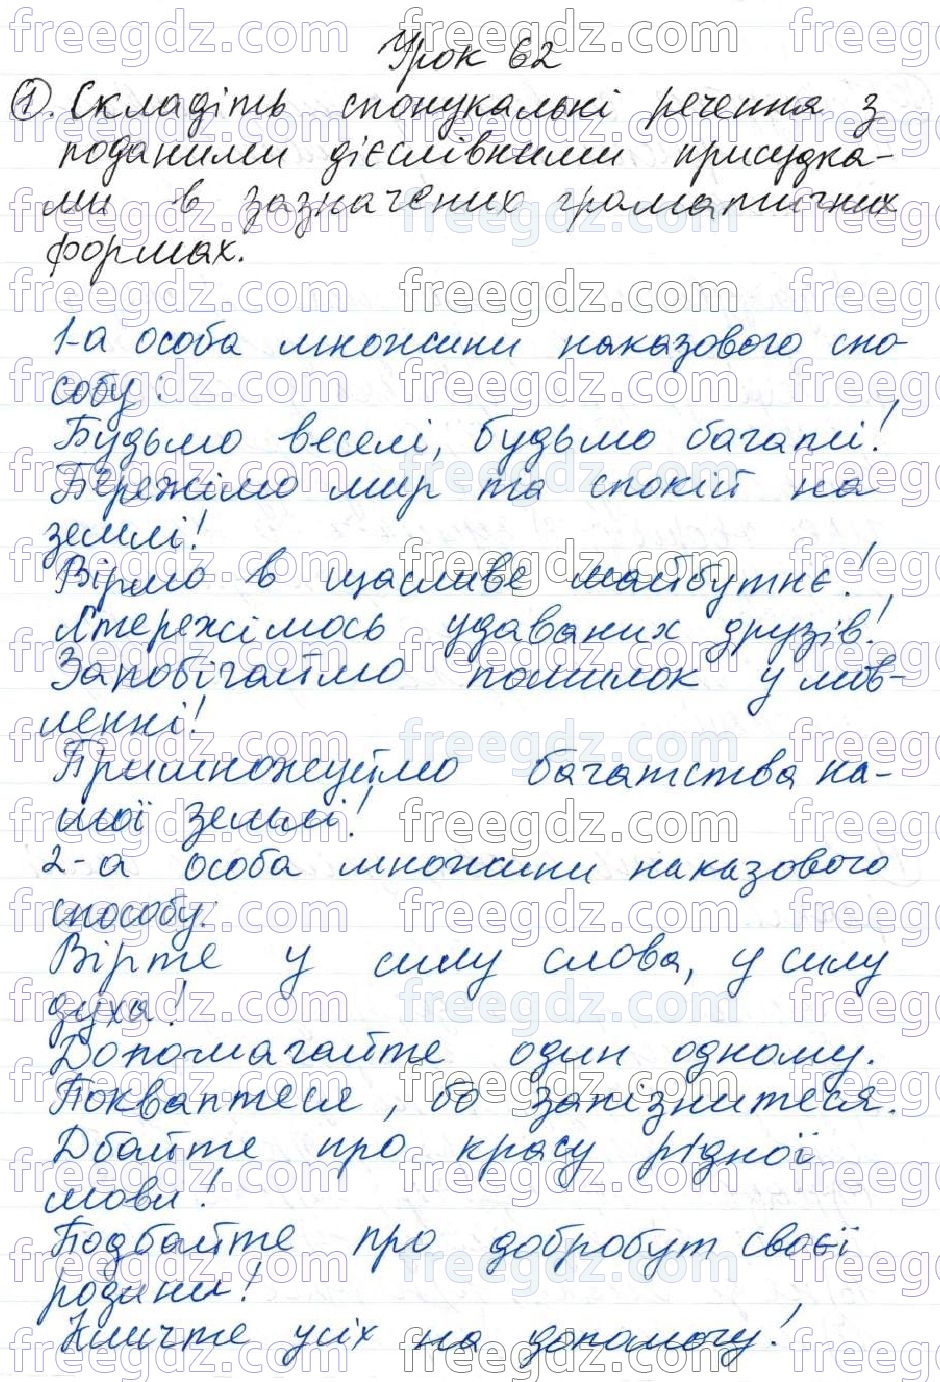 Урок 62
1. Складіть спонукальні речення з
поданими дієслівними присудка-
ми в зазначених граматичних
формах.
1-а особа множини наказового спо-
собу:
Будьмо веселі, будьмо багаті!
Бережімо мир та спокій на
землі!
Вірмо в щасливе майбутнє!
Стережімось удаваних друзів!
Запобігаймо помилок у мов-
ленні!
Примножуймо багатства на-
шої землі!
2-а особа множини наказового
способу:
Вірте у силу слова, у силу
духа!
Допомагайте один одному.
Покваптеся, бо запізнитеся.
Дбайте про красу рідної
мови!
Подбайте про добробут своєї
родини!
Кличте усіх на допомогу!
freegdz.com